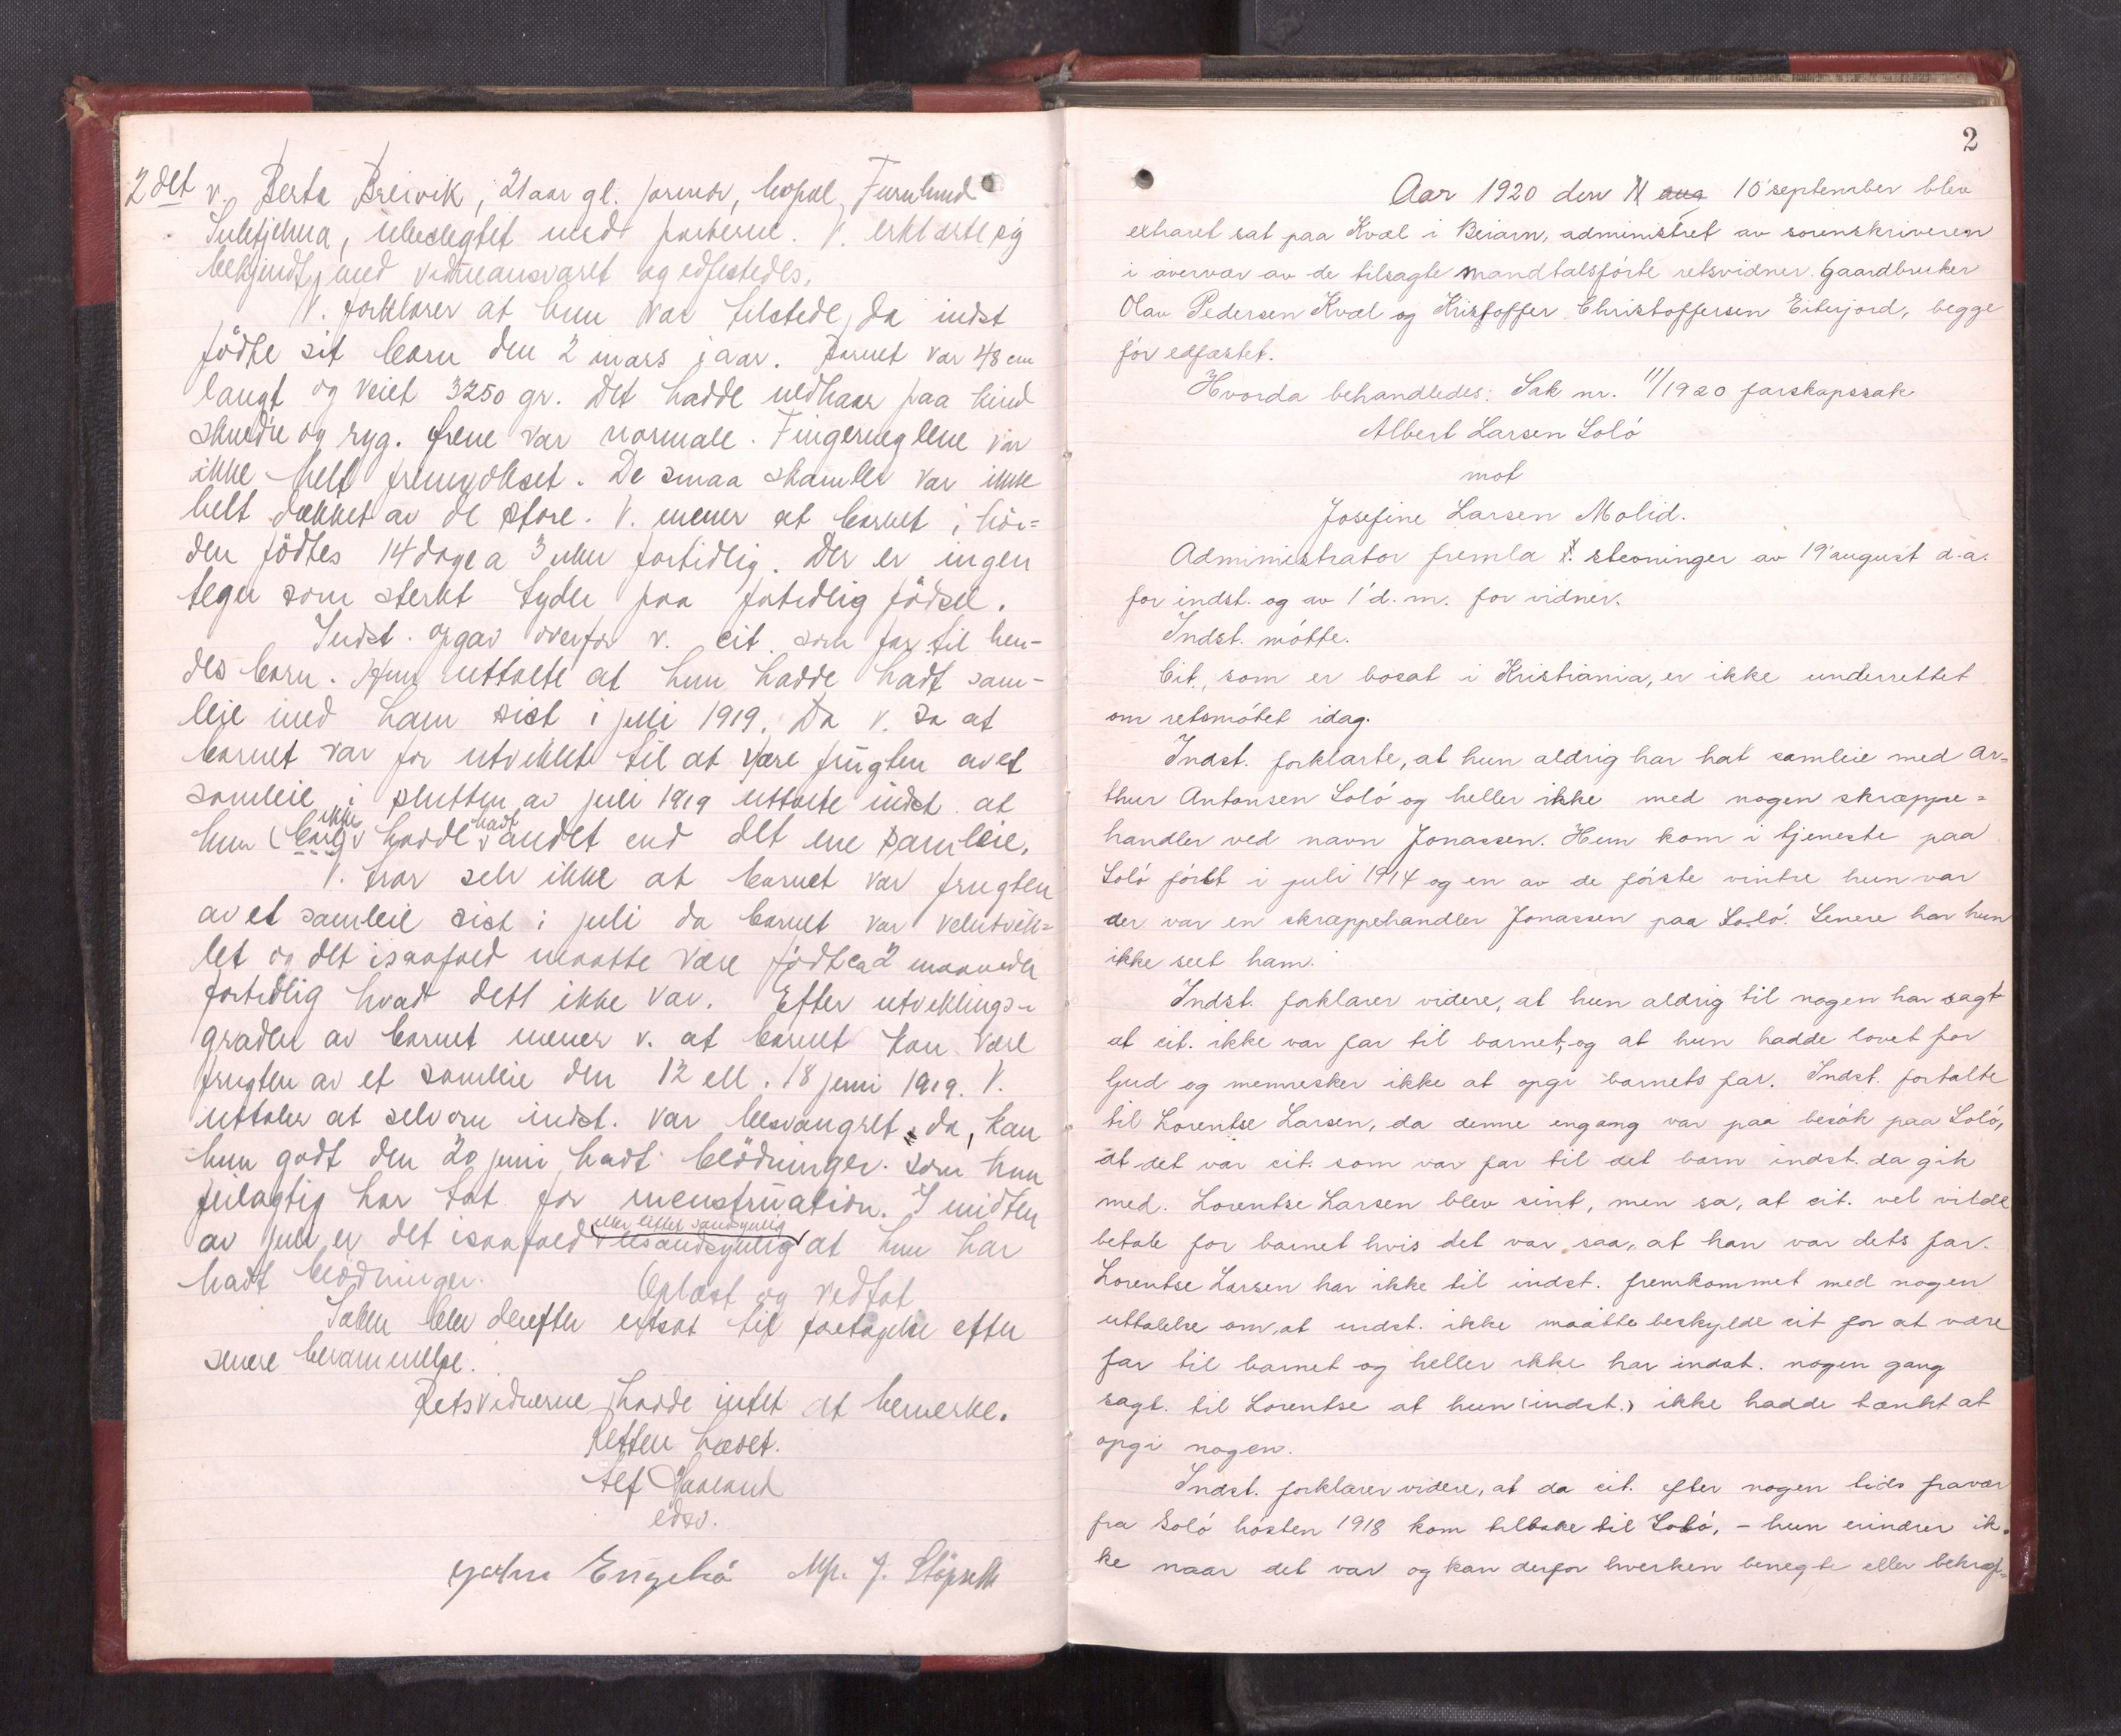 2det v. Berta Breivik, 21 aar gl. jormor, bopæl Furulund
Sulitjelma, ubeslegtet med parterne. V. erklærte sig
bekjendt med vidneansvaret og edfestedes.
V. forklarer at hun var tilstede, da indst
födte sit barn den 2 mars i aar. Barnet var 48 cm
langt og veiet 3250 gr. Det hadde uldhaar paa kind
skuldre og ryg. Ørene var normale. Fingerneglene var
ikke helt fremvokset. De smaa skamlæ var ikke
helt dækket av de store. V. mener at barnet i höi=
den födtes 14 dage a 3 uker fortidlig. Der er ingen
tegn som sterkt tyder paa fortidlig födsel.
Indst. opgav overfor v. cit. som far til hen-
des barn. Hun uttalte at hun hadde hadt sam-
leie med ham sist i juli 1919. Da v. sa at
barnet var for utviklet til at være frugten av et
samleie i slutten av juli 1919 uttalte indst. at
hun ikke hadde hadt andet end det ene samleie.
V. tror selv ikke at barnet var frugten
av et samleie sist i juli da barnet var velutvik=
let og det isaafald maatte være födt ca 2 maaneder
fortidlig hvad dett ikke var. Efter utviklings-
graden av barnet mener v. at barnet kan være
frugten av et samleie den 12 ell. 18 juni 1919. V.
uttaler at selv om indst. var besvangret da, kan
hun godt den 20 juni hadt blödninger som hun
feilagtig har tat for menstruation. I midten
eller litet sandsynlig
av juli er det isaafald usandsynlig at hun har
hadt blödninger. Oplæst og vedtat
Saken blev derefter utsat til foretagelse efter
senere berammelse.
Retsvidnerne hadde intet at bemerke.
Retten hævet.
Alf
edsv.
Engebö
2
Aar 1920 den 11 aug 10 september blev
extraret sat paa Kvæl i Beiarn, administret av sorenskriveren
i overvær av de tilsagte mandtalsförte retsvidner gaardbruker
Olav Pedersen Kvæl og Kristoffer Christoffersen Eiterjord, begge
för edfæstet.
Hvorda behandledes: Sak nr. 11/1920 farskapssak
Albert Larsen Solö
mot
Josefine Larsen Molid.
Administrator fremla stevninger av 19 august d.a.
for indst. og av 1 d. m. for vidner.
Indst. mötte.
Cit., som er bosat i Kristiania, er ikke underrettet
om retsmötet idag.
Indst. forklarte, at hun aldrig har hat samleie med Ar=
thur Antonsen Solö og heller ikke med nogen skræppe=
handler ved navn Jonassen. Hun kom i tjeneste paa
Solö först i juli 1914 og en av de förste vintre hun var
der var en skræppehandler Jonassen paa Solö. Senere har hun
ikke seet ham.
Indst. forklarer videre, at hun aldrig til nogen har sagt
at cit. ikke var far til barnet, og at hun hadde lovet for
Gud og mennesker ikke at opgi barnets far. Indst. fortalte
til Lorentse Larsen, da denne engang var paa besök paa Solö,
at det var cit. som var far til det barn indst. da gik
med. Lorentse Larsen blev sint, men sa, at cit. vel vilde
betale for barnet hvis det var saa, at han var dets far.
Lorentse Larsen har ikke til indst. fremkommet med nogen
uttalelse om, at indst. ikke maatte beskylde cit for at være
far til barnet og heller ikke har indst. nogen gang
sagt til Lorentse at hun (indst.) ikke hadde tænkt at
opgi nogen.
Indst. forklarer videre, at da cit. efter nogen tids fravær
fra Solö hösten 1918 kom tilbake til Solö, - hun erindrer ik-
ke naar det var og kan derfor hverken benegte eller bekræf=